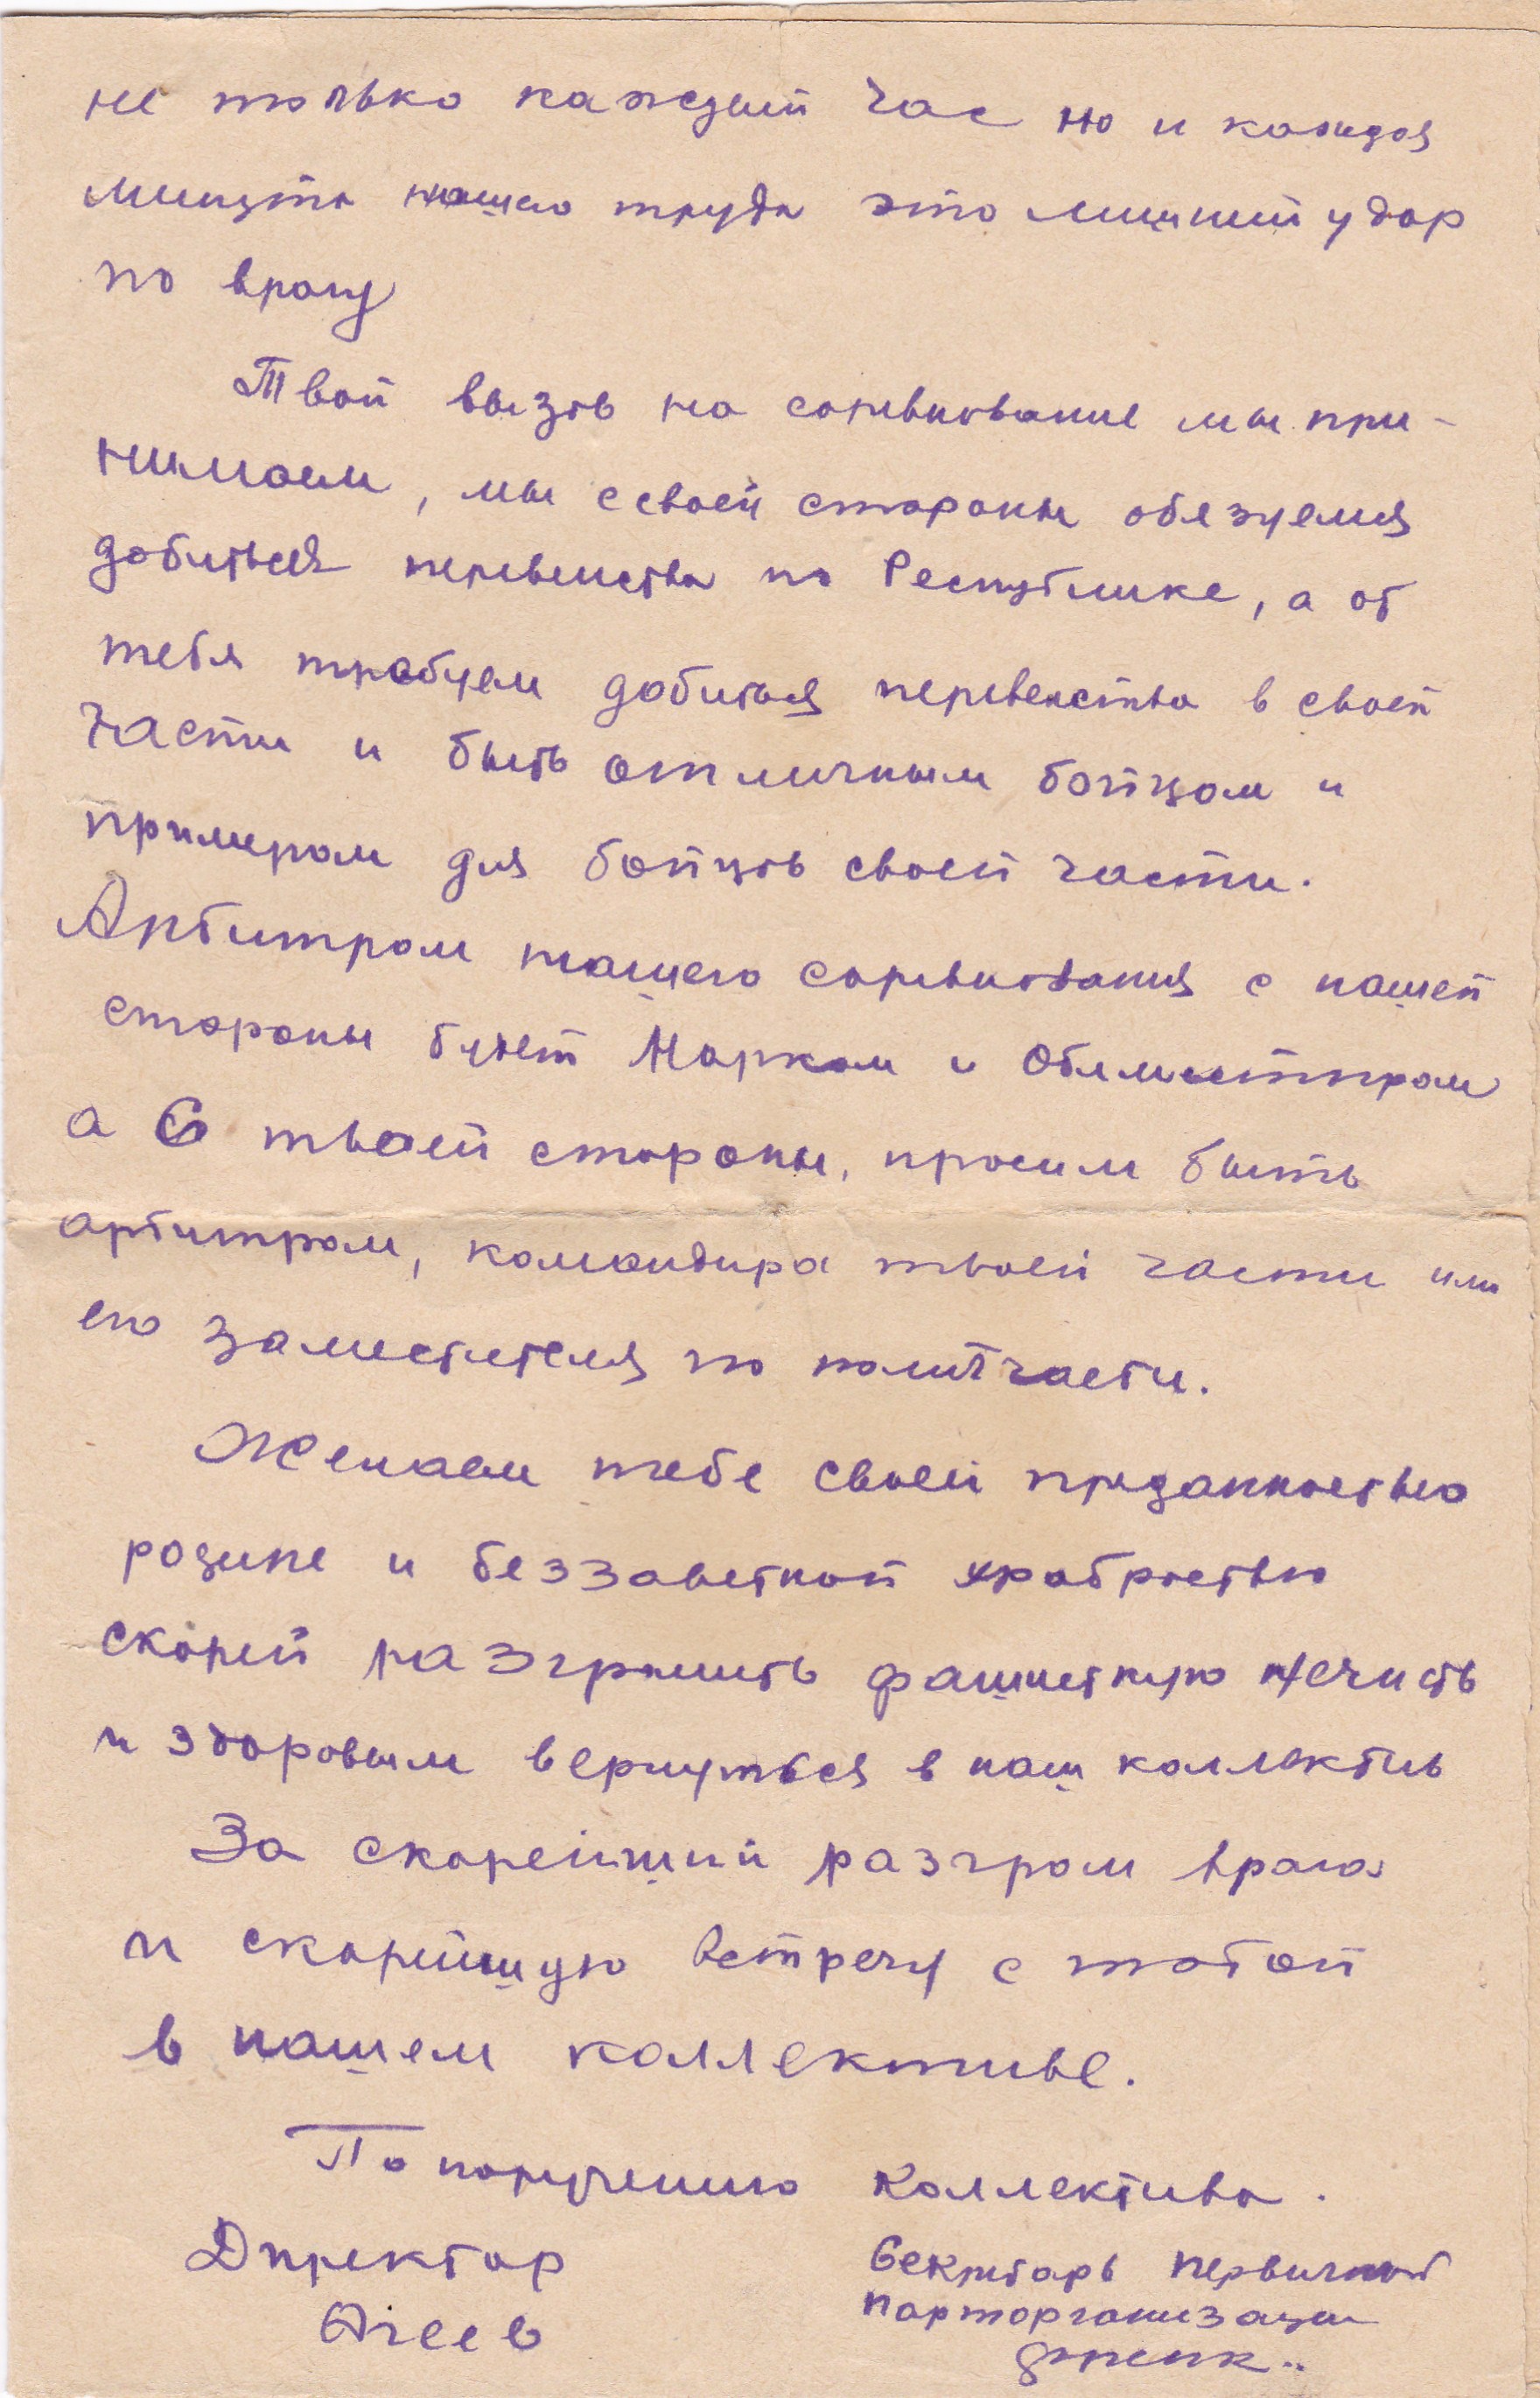 не только каждый час но и каждая
минута нашего труда это лишний удар
по врагу
Твой вызов на соревнование мы при-
нимаем, мы с своей стороны обязуемся
добиться первенства по Республике, а от
тебя требуем добиться первенства в своей
части и быть отличным бойцом и
примером для бойцов своей части.
Арбитром нашего соревнования с нашей
стороны будет Нарком и
а с твоей стороны, просим быть
арбитром, командира твоей части или
его заместителя по политчасти.
Желаем тебе своей преданностью
родине и беззаветной храбростью
скорей разгромить фашисткую нечисть
и здоровым вернуться в наш коллектив
За скорейший разгром врага
и скорейшую встречу с тобой
в нашем коллективе.
По поручению коллектива.
Директор
Агеев
Секретарь первичной
парторганизации